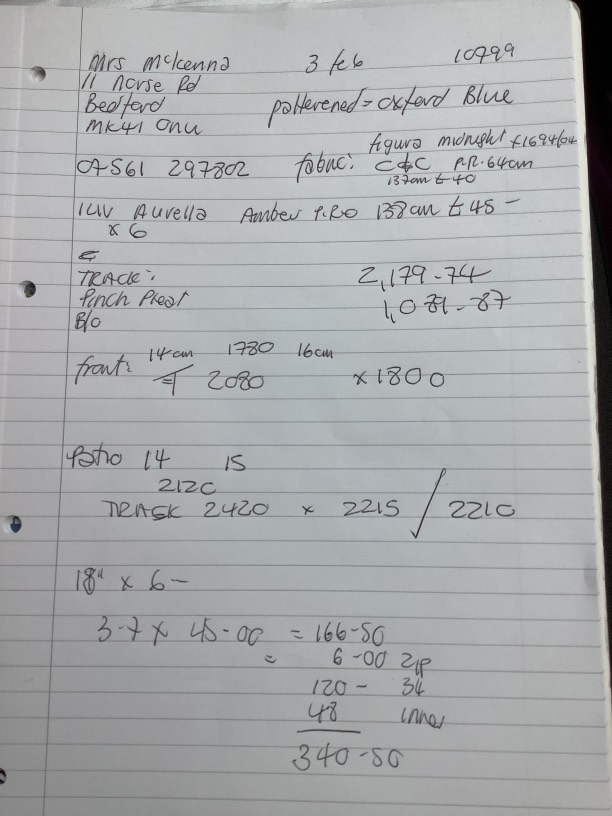 Mrs McKenna 3 feb 10799
11 Norse Rd
Bedford patterened = oxford Blue
MK41 0NU
figura midnight £1694/64
07561 297802 fabric: C&C P.R. 64cm
137cm £40
Aurella Amber P.R0 138cm £45 -
x 6
TRACK: 2,179-74
Pinch Pleat
B/O
front: 14cm 1780 16cm
2080 x 1800
Patio 14 15
2120
2420 x 2215 / 2210
18" x 6 -
3-7 x 45-00 = 166-50
= 6-00 Zip
120 - 34
48 inner
340-50